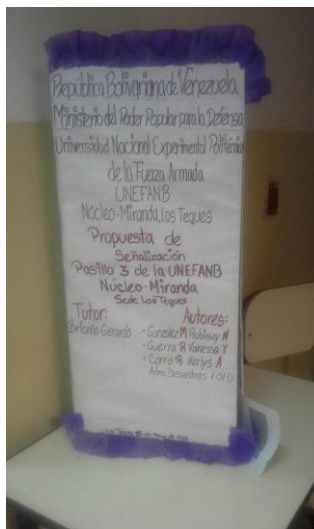 República Bolivariana de Venezuela
Ministerio del Poder Popular para la Defensa
Universidad Nacional Experimental Politécnica
de la Fuerza Armada
UNEFANB
Núcleo-Miranda, Los Teques
Propuesta de
Señalización
Pasillo 3 de la UNEFANB
Núcleo-Miranda
Sede Los Teques
Tutor:
Briceño Gerardo
Autores:
• Gonzalez M. M
• Guerra R Vanessa Y
• Corro R Harlys A
Adm. Desastres
Los Teques de de